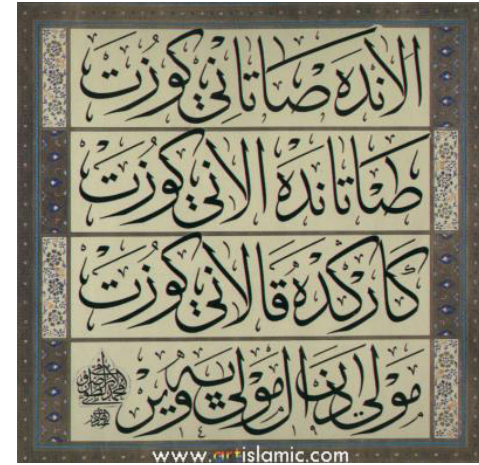 الانده صاتاني كوزت
صاتانده الاني كوزت
كاركده قالاني كوزت
مولى دن ال مولى يه وير
١٤١٩
www.artislamic.com